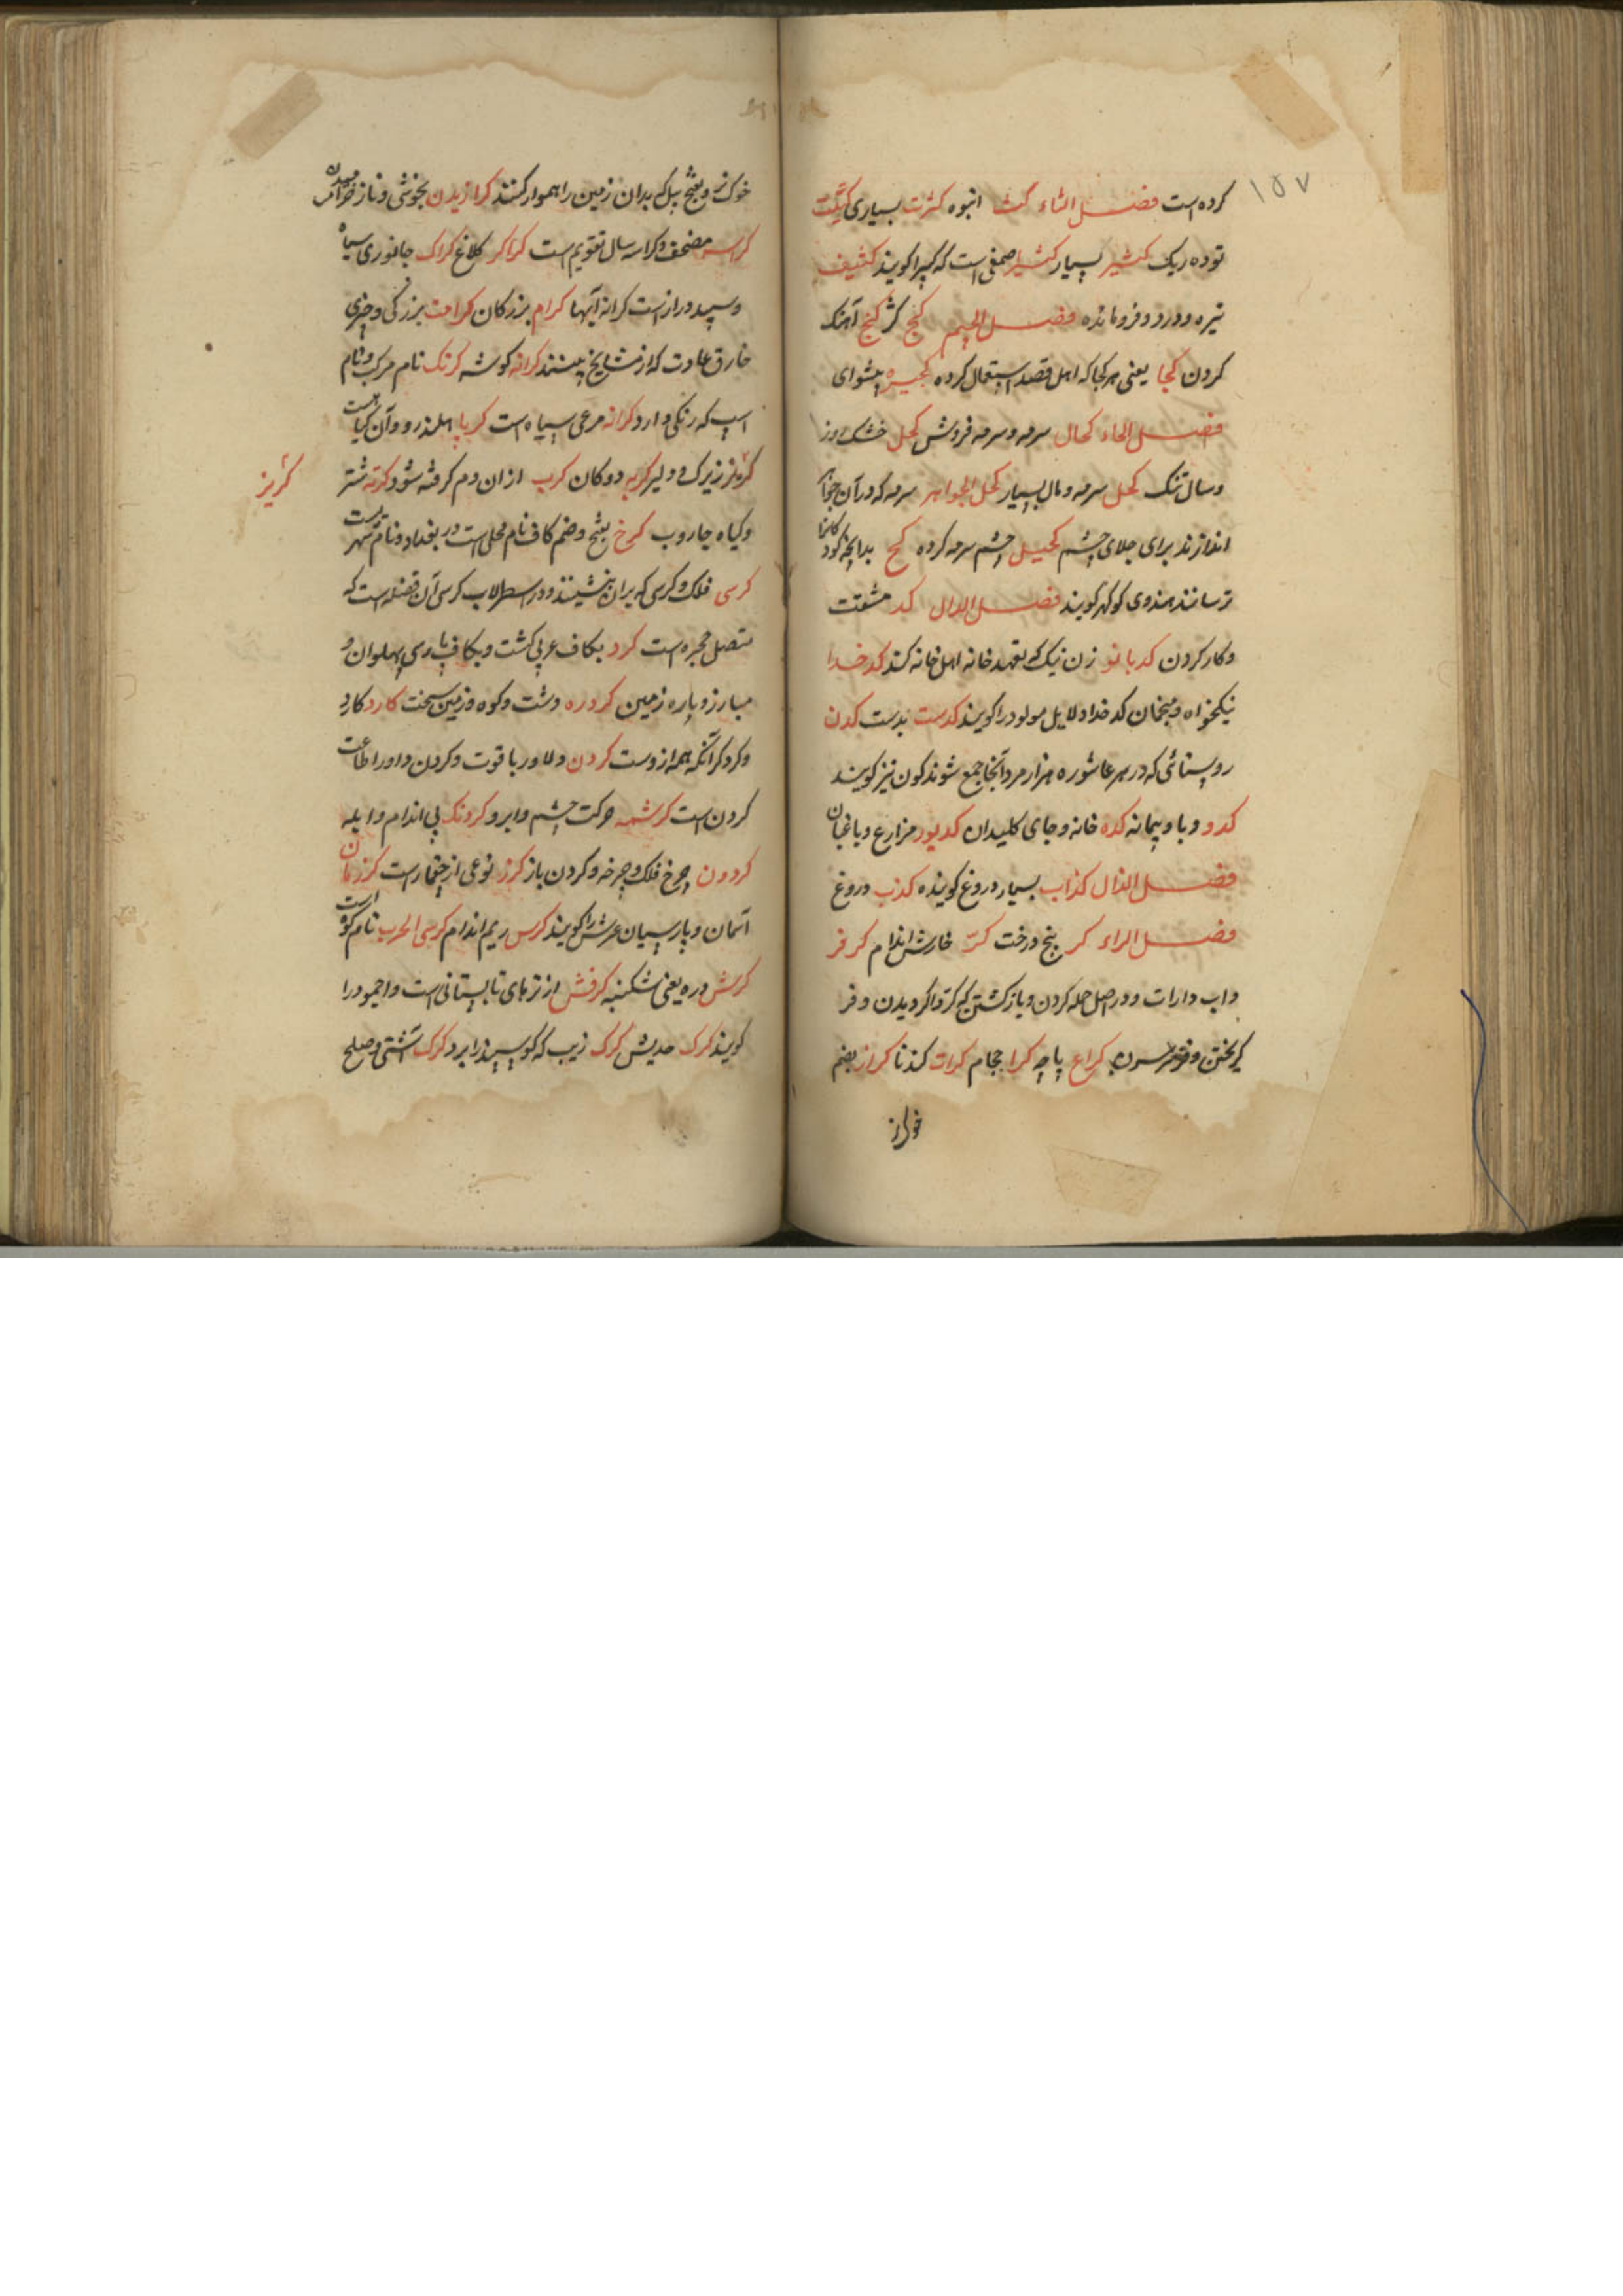 ۱۵۷
کرده است فصل الثاء کث انبوه کثرت بسیاری
توده ریک کثیر بسیار کثیرا صمغی است که کتیرا کویند کثیف
تیره و درد و فرومانده فصل الجیم کج کژ کج آهنک
کردن کجا یعنی هر کجا که اهل قصد استعمال کرده پیشوای
فصل الحاء کحال سرمه و سرمه فروش کحل خشک روز
و سال تنک کحل سرمه و مال بسیار کحل الجواهر سرمه که در آن جواهر
اندازند برای جلای چشم کحیل چشم سرمه کرده کخ بدانچه کودکانرا
ترسانند هندوی کوکهر کویند فصل الدال کد مشقت
و کار کردن کدبانو زن نیک که تعهد خانه اهل خانه کند کدخدا
نیکخواه و منجمان کدخدا دلایل مولود را کویند کدست بدست کدن
روستائی که در هر عاشوره هزار مرد آنجا جمع شوند کون نیز کویند
کدو دبا و پیمانه کده خانه و جای کلیدان کدیور مزارع و باغبان
فصل الذال کذاب بسیار دروغ کوینده کذب دروغ
فصل الراء کر بنج درخت کر خارش اندام کر فر
داب دارات و در اصل حمله کردن و بازکشتن که کر واکردیدن و فر
کریختن کراع پاچه کرا حجام کراث کندنا کراز بضم
خوک نر
خوک نر و بفتح بیل که بدان زمین را هموار کنند کرازیدن بخوشی و ناز خرامیدن
کراسه مصحف و کراسه سال تقویم است کراکر کلاغ کراک جانوری سیاه
و سپید دراز است کرانه آبها کرام بزرکان کرامت بزرکی و چیزی
خارق عادت که از مشایخ بینند کرانه کوشه کرنک نام مرکب و نام
اسب که رنکی دارد کرانه مرغی سیاه است کرپا و آن کیاهیست
کربز زیرک و دلیر کربه دوکان کرب از ان دم کرفته شود کرته شتر
کربز
و کیاه جاروب کرخ بفتح و ضم کاف نام محلی است در بغداد و نام شهریست
کرسی فلک و کرسی که بران بنشینند و در اسطرلاب کرسی آن فضله است که
متصل حجره است کرد بکاف عربی کشت و بکاف پارسی پهلوان و
مبارز و پاره زمین کردره دشت و کوه و زمین سخت کارد کارد
و کردکر آنکه همه از وست کردن دلاور با قوت و کردن داور اطاعت
کردن است کرشمه حرکت چشم و ابرو کردنک بی اندام و ابله
کردون چرخ فلک و چرخه و کردن باز کرز نوعی از است کرزمان
آسمان و پارسیان عرش را کویند کرس ریم اندام کرسی الحرب نام کوه است
کرش دره یعنی شکنبه کرفش از ترهای تابستانی است و اجمود را
کویند کرک کرک زیب که کوسپند را برد کرک آشتی و صلح